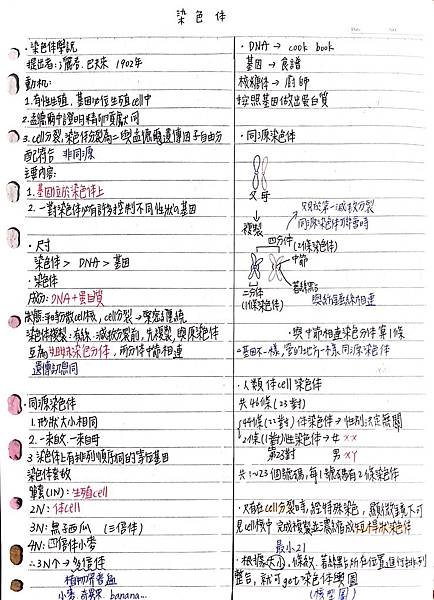 染色体
·染色体學說
提出者:洒吞.巴夫來 1902年
動机:
1.有性生殖,基因必位生殖cell中
2.孟德爾中證明精卵貢獻同
3.cell分裂,染色体分裂為二與孟德爾遺傳因子自由分
配符合 非同源
主要內容:
1.基因位於染色体上
2.一對染色体必有許多控制不同性狀の基因
·尺寸
染色体 > DNA > 基因
·染色体
成份:DNA+蛋白質
互為姐妹染色分体,兩分体中節相連
遺傳訊息同
·同源染色体
1.形狀大小相同
2.一來自父.一來自母
3.染色体上有排列順序相同的等位基因
染色体套數
單套(1N):生殖cell
2N:体cell
3N:無子西瓜 (三倍体)
4N:四倍体小麥
∴3N↑→多倍体
植物常產生
小麥.奇異果.banana...
·DNA → cook book
基因 → 食譜
核糖体 → 廚師
按照基因做出蛋白質
·同源染色体
父 母
只於第一減數分裂
同源染色体聯會時
複製
四分体
(2條染色体)
中節
二分体
(1條染色体)
與紡錘絲相連
·與中節相連染色分体算1條
·基因不一樣,管的地方一樣同源染色体
·人類体cell染色体
共46條(23對)
44條(22對)体染色体→性別決定無關
2條(1對)性染色体→女 XX
第23對 男 XY
共1~23個號碼,每1號碼有2條染色体
·只有在cell分裂時,經特殊染色,顯微鏡下可
見cell核中完成複製並濃縮成短棒狀染色体
最小21
·根據大小、條紋、著絲點所在位置進行排列
整合,就可get染色体輿圖
(核型圖)